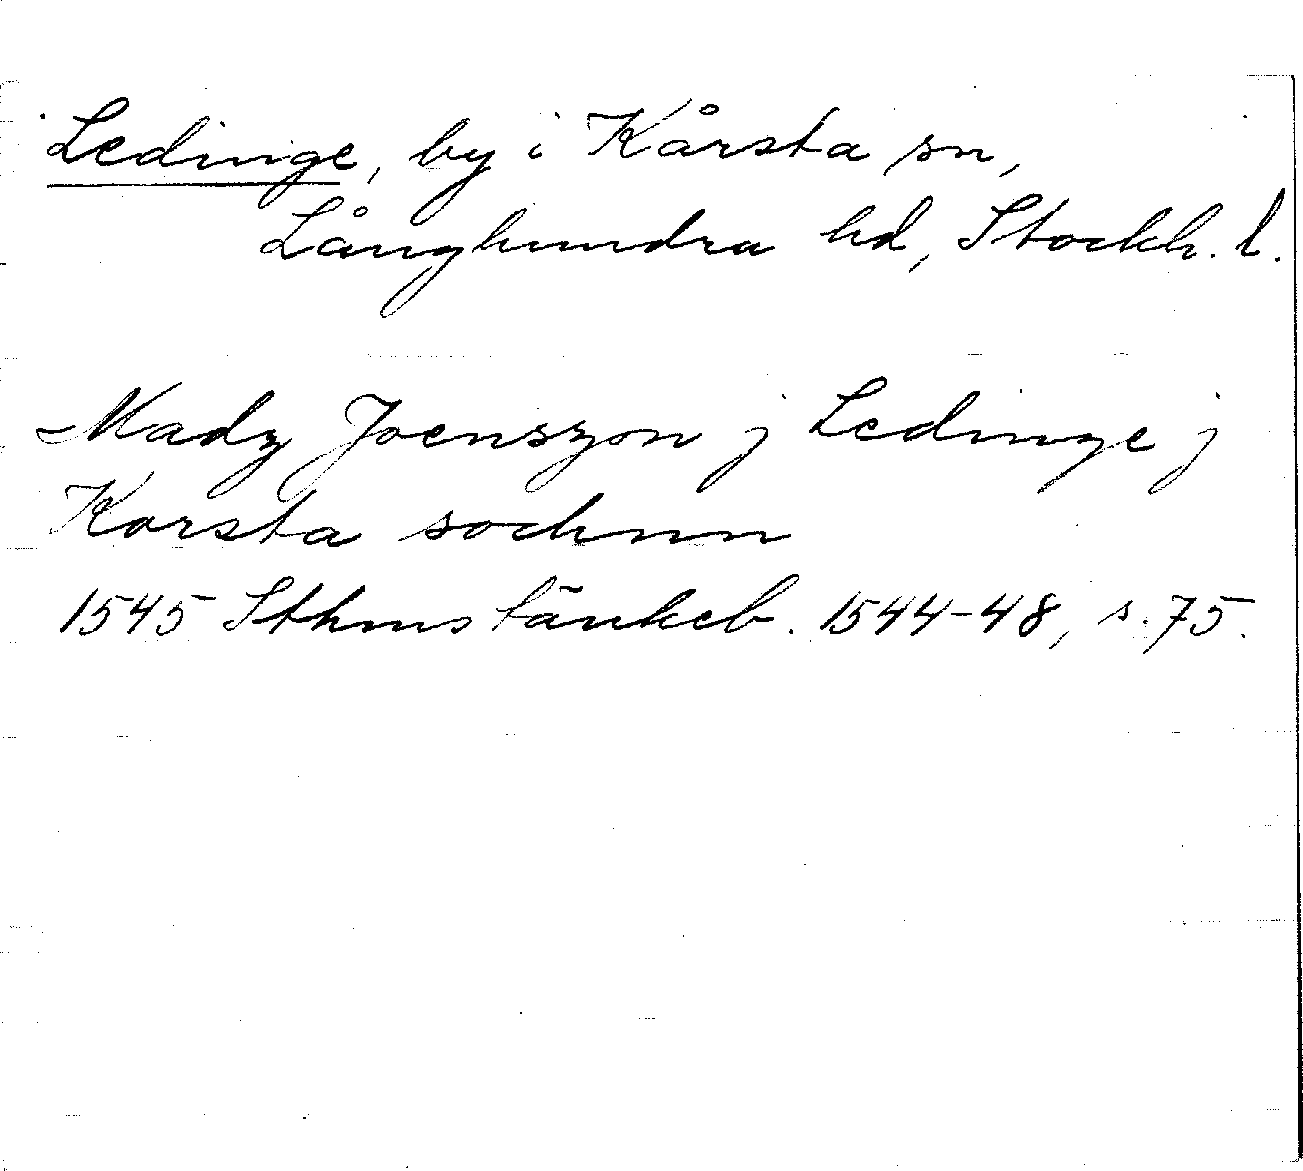 Ledinge, by i Kårsta sn,
Långhundra hd, Stockh. l.
Madz Joenszon j Ledinge j
Korsta sochnn
1545 Sthms tänkeb. 1544-48, s. 75.